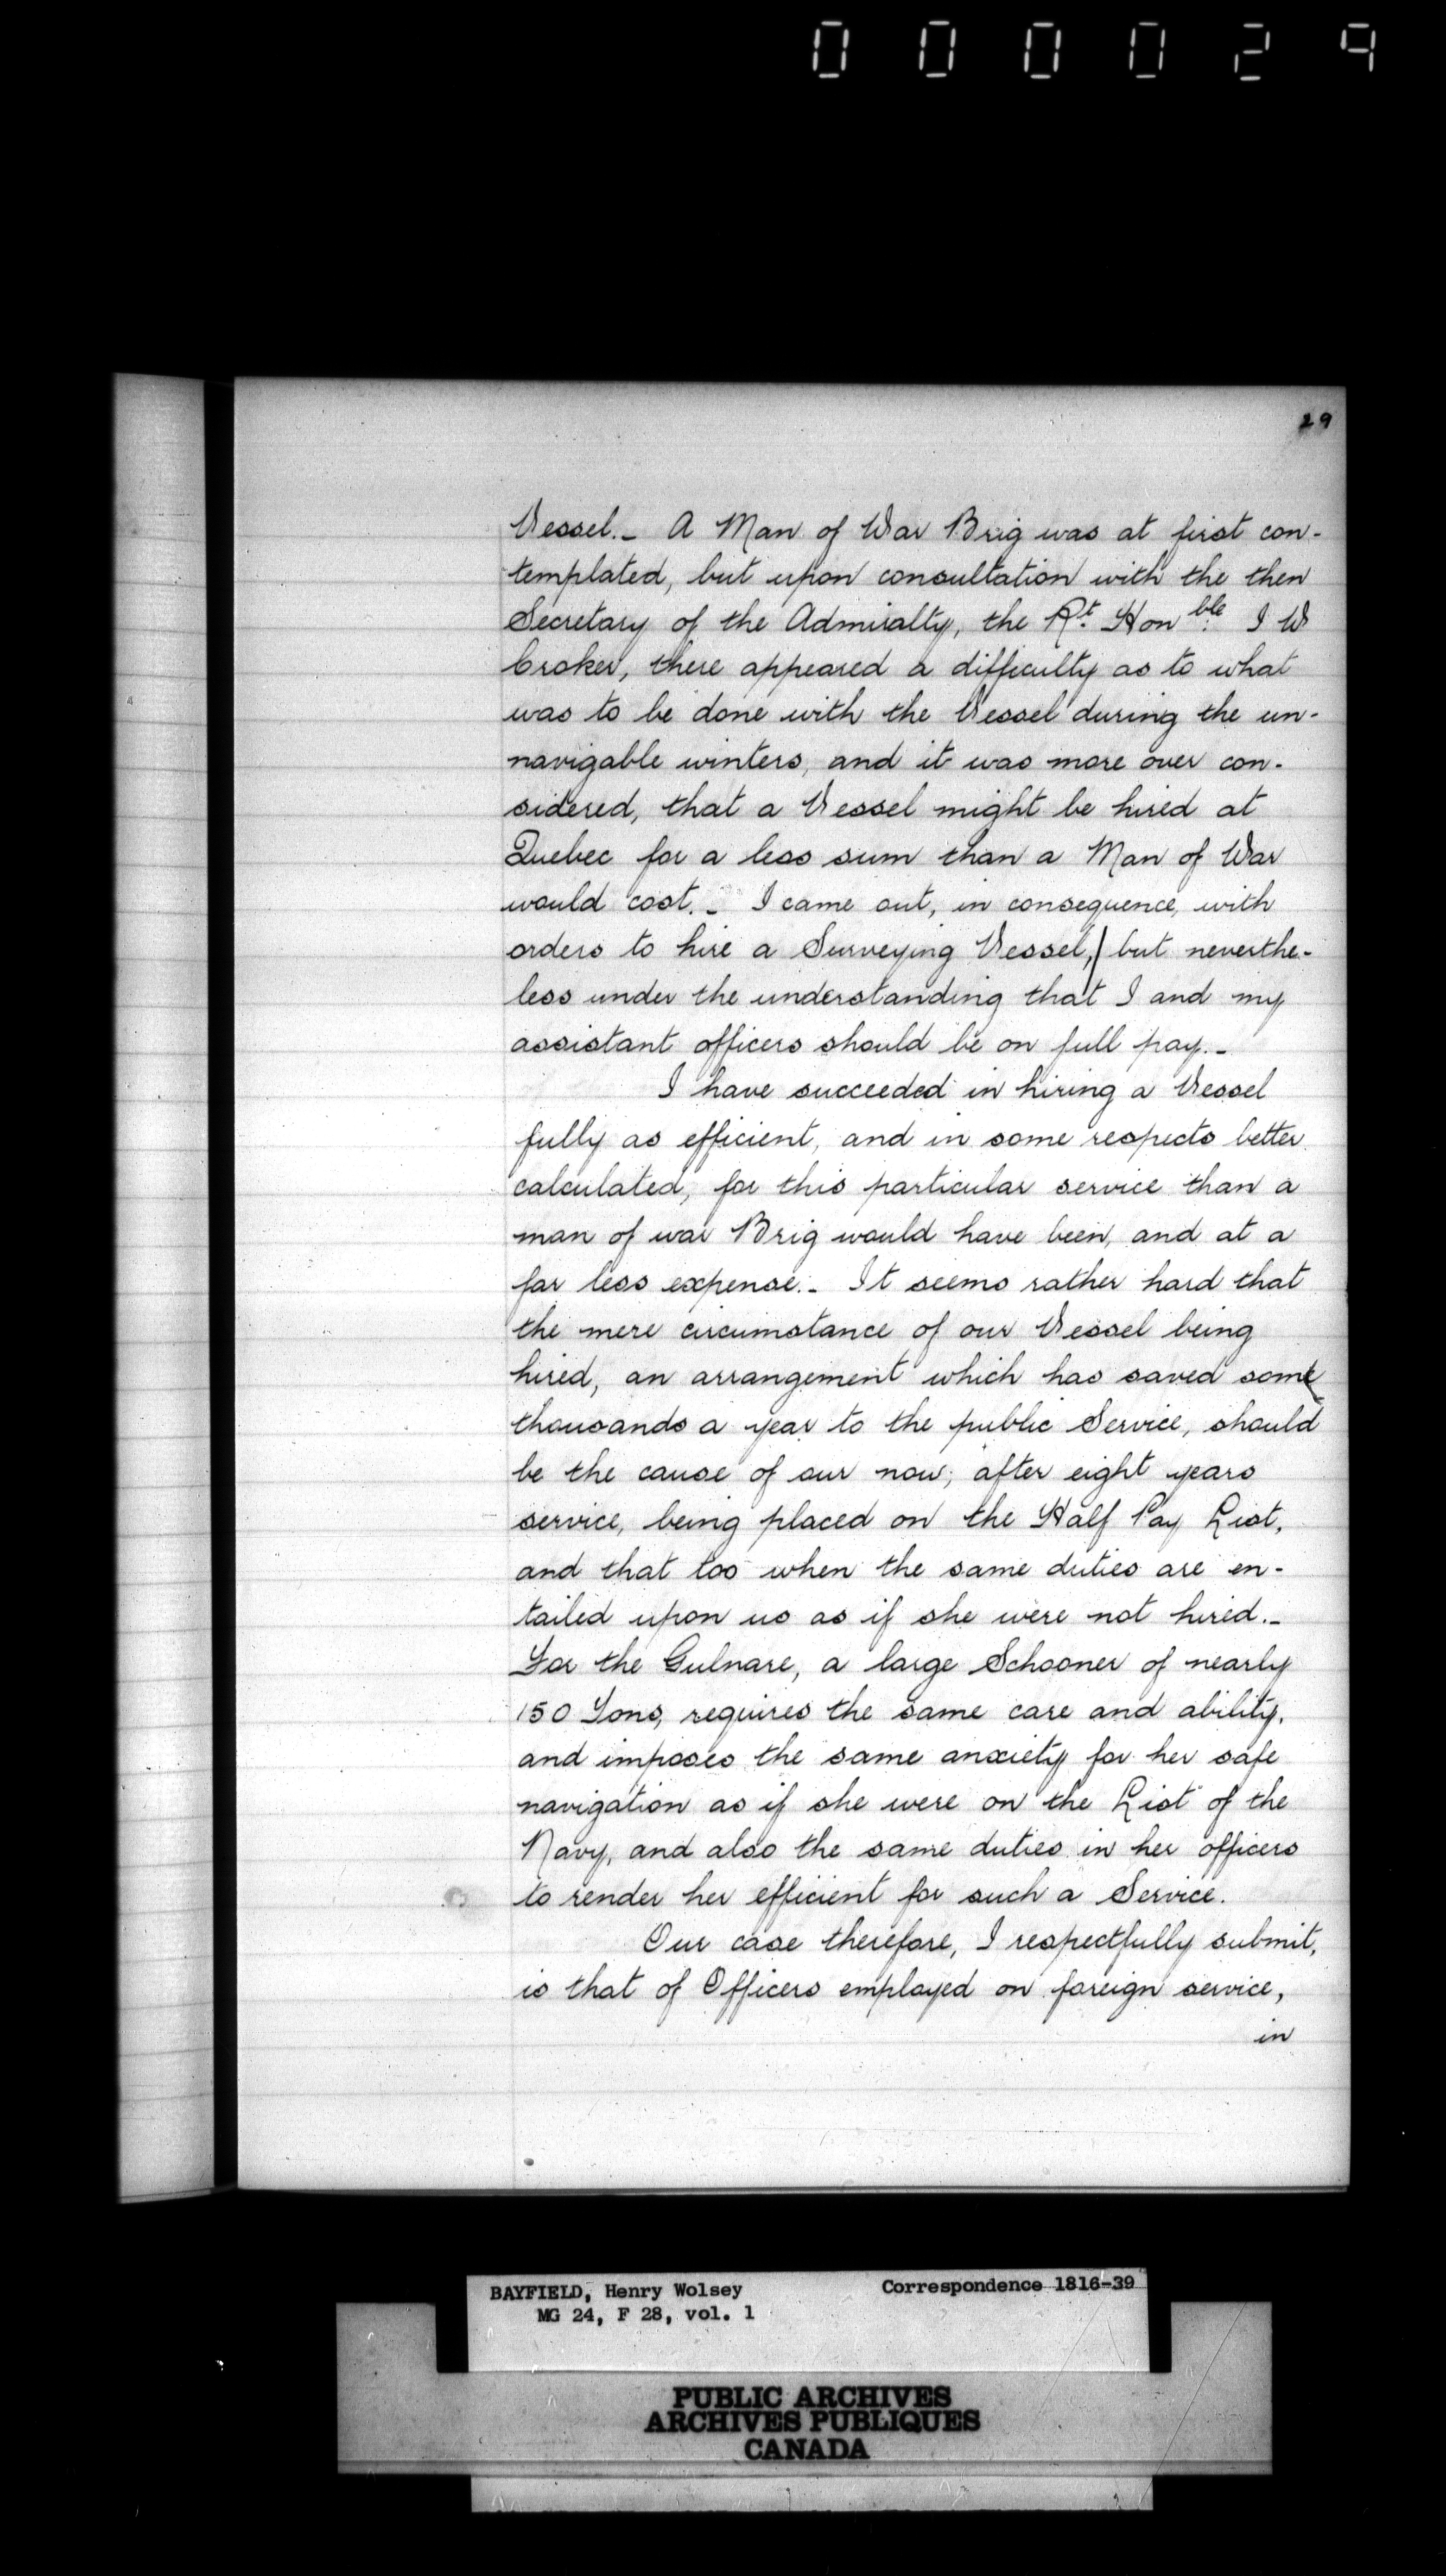 000029
29
Vessel._ A Man of War Brig was at first con-
templated, but upon consultation with the then
Secretary of the Admiralty, the Rt. Honble. I W
Croker, there appeared a difficulty as to what
was to be done with the Vessel during the un-
navigable winters, and it was more over con-
sidered, that a Vessel might be hired at
Quebec for a less sum than a Man of War
would cost._ I came out, in consequence, with
orders to hire a Surveying Vessel, but neverthe-
less under the understanding that I and my
assistant officers should be on full pay._
I have succeeded in hiring a Vessel
fully as efficient, and in some respects better
calculated, for this particular service than a
man of war Brig would have been, and at a
far less expense._ It seems rather hard that
the mere circumstance of our Vessel being
hired, an arrangement which has saved some
thousands a year to the public Service, should
be the cause of our now, after eight years
service, being placed on the Half Pay List,
and that too when the same duties are en-
tailed upon us as if she were not hired._
For the Gulnare, a large Schooner of nearly
150 Tons, requires the same care and ability,
and imposes the same anxiety for her safe
navigation as if she were on the List of the
Navy, and also the same duties in her officers
to render her efficient for such a Service.
Our case therefore, I respectfully submit,
is that of Officers employed on foreign service,
in
BAYFIELD, Henry Wolsey Correspondence 1816-39
MG 24, F 28, vol. 1
PUBLIC ARCHIVES
ARCHIVES PUBLIQUES
CANADA